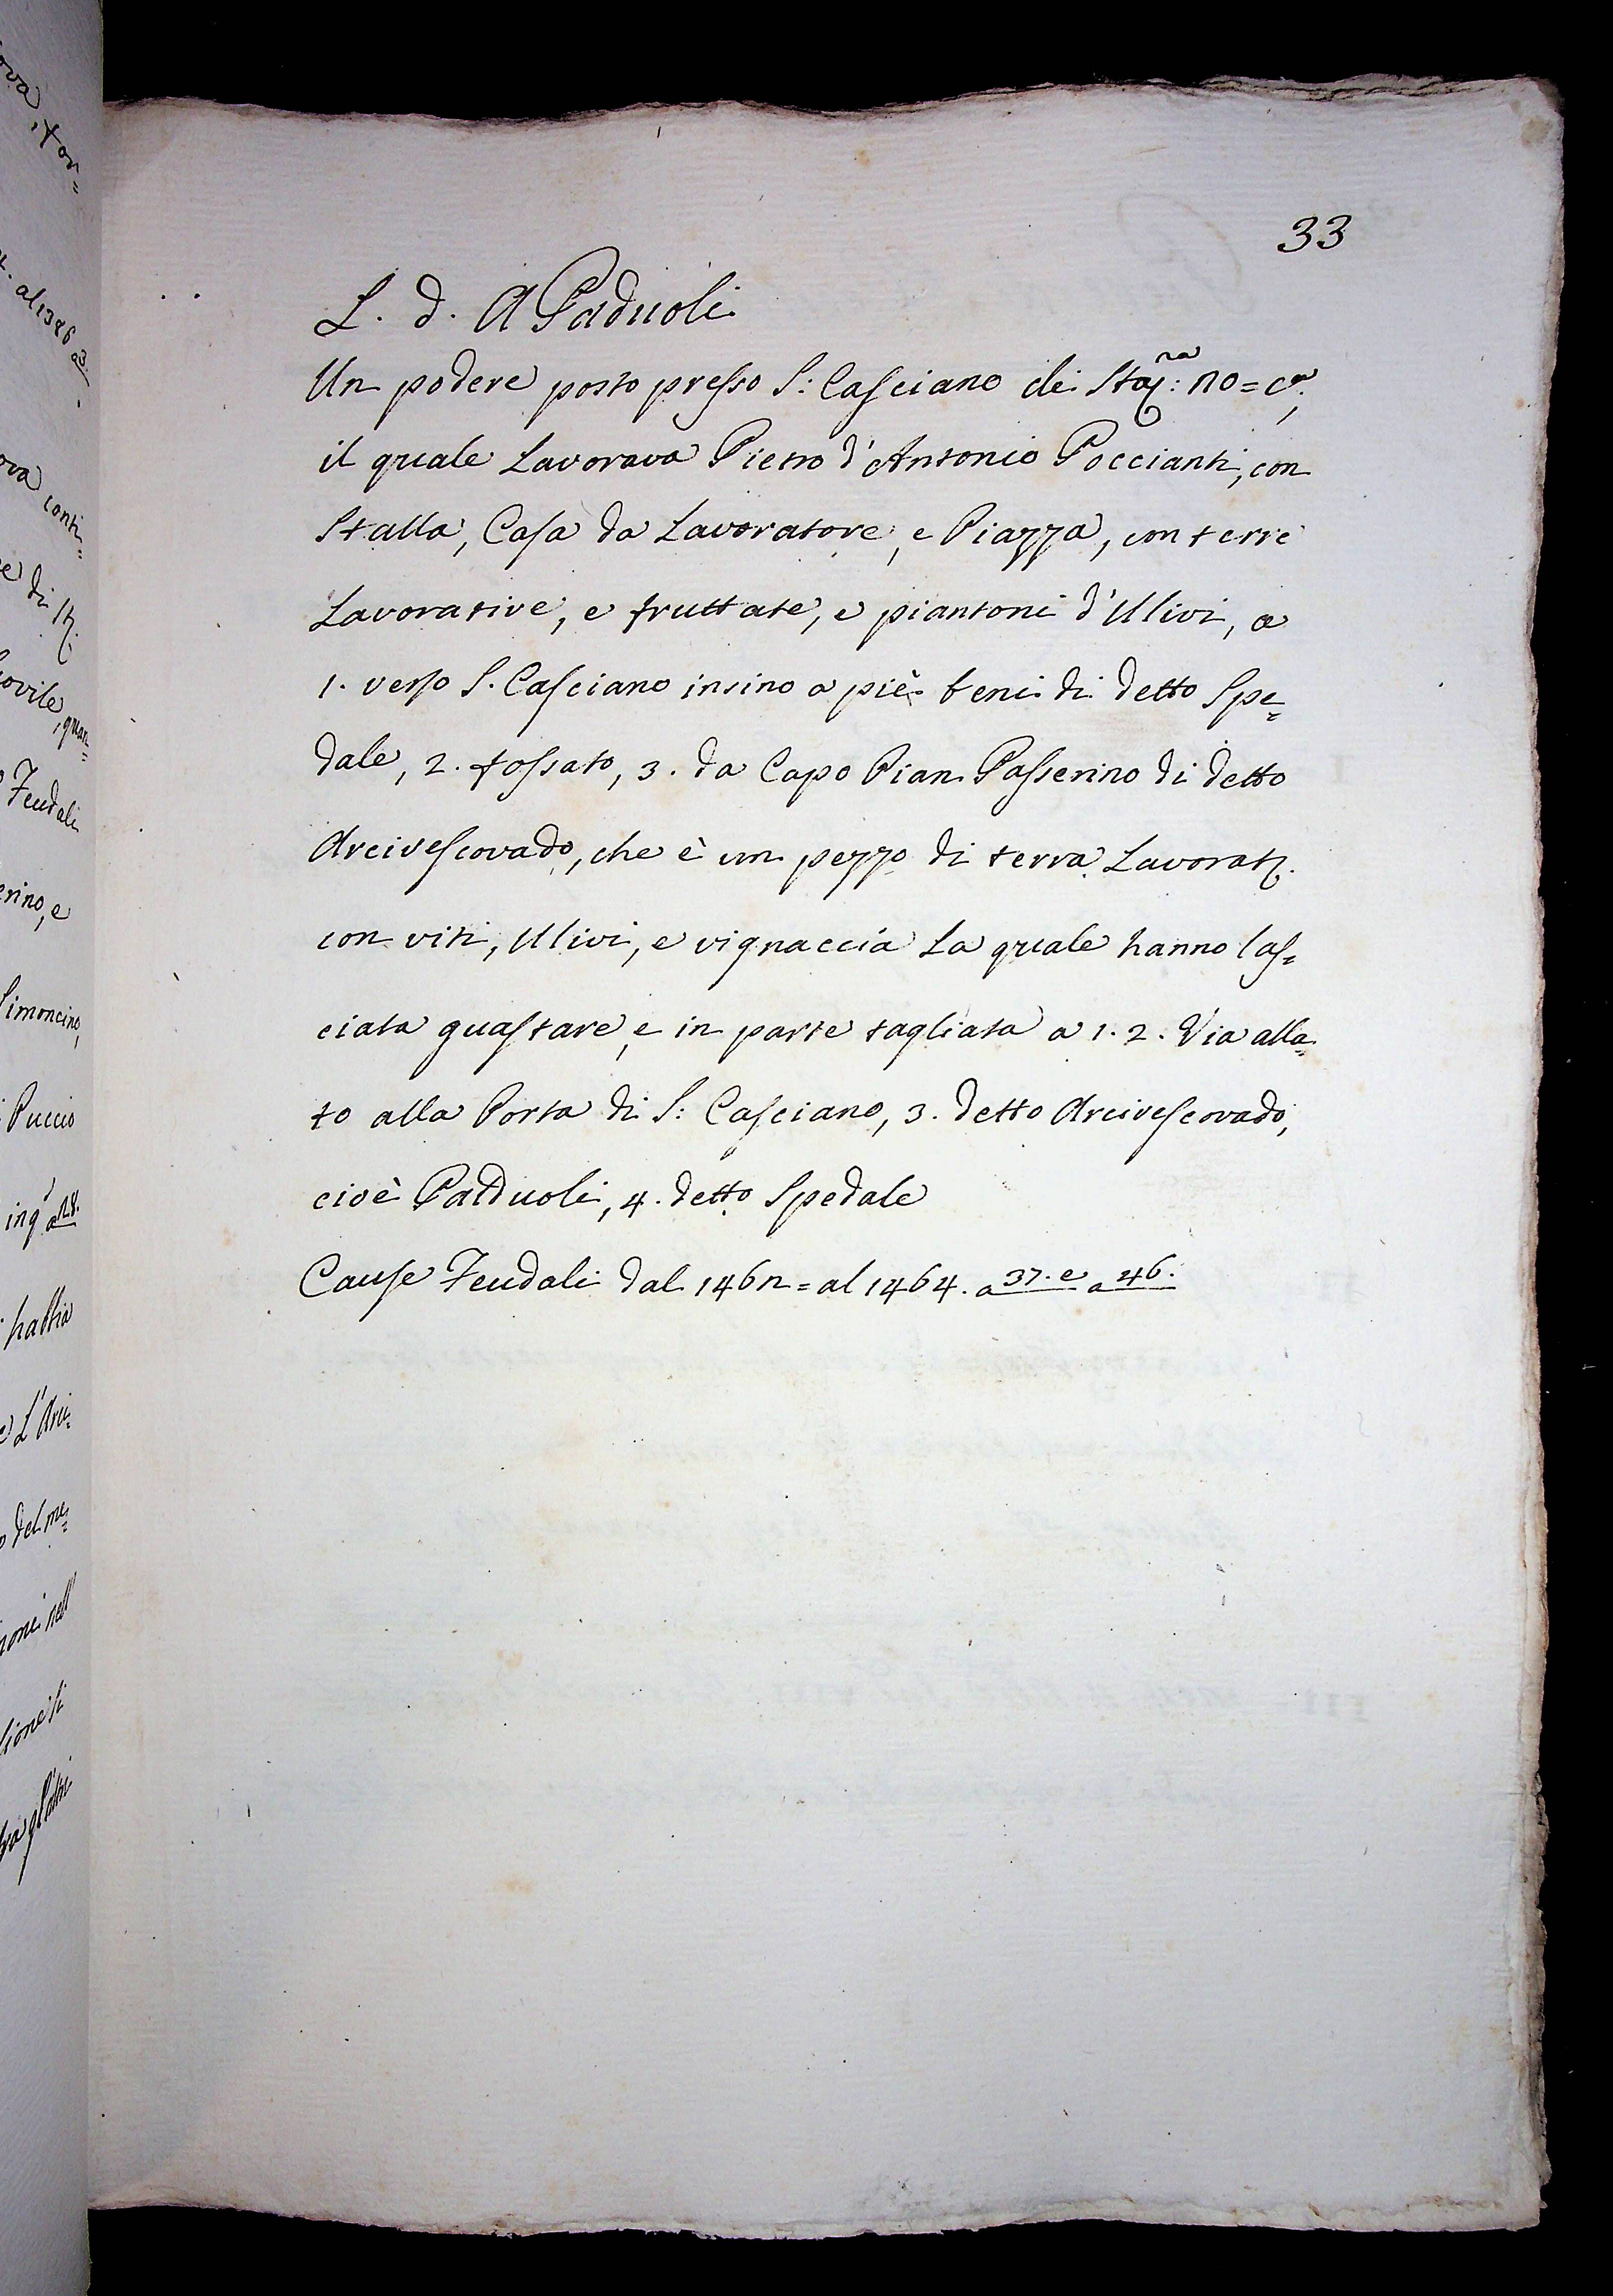 33
L. d. A Paduoli
Un podere posto presso S: Casciano di
il quale Lavorava Pietro d'Antonio Poccianti, con
Stalla, Casa da Lavoratore, e Piazza, con terre
Lavorative, e fruttate, e piantoni d'Ulivi, a
1. verso S. Casciano insino a piè beni di detto Spe=
dale, 2. fossato, 3. da Capo Pian Passerino di detto
Arcivescovado, che è un pezzo di terra Lavorat.
con viti, Ulivi, e vignaccia La quale hanno las=
ciata guastare, e in parte tagliata a 1. 2. Via alla=
to alla Porta di S: Casciano, 3. detto Arcivescovado,
cioè Padduoli, 4. detto Spedale
Cause Feudali dal 146n = al 1464. a 37. e a 46.